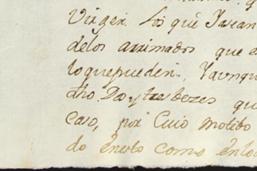 Virgen. los que Tasan
delos arrimados que a
loquepueden, Yaunqu
dho, Dos, y tres bezes qu
caso, por Cuio motibo
do enesto como enlo